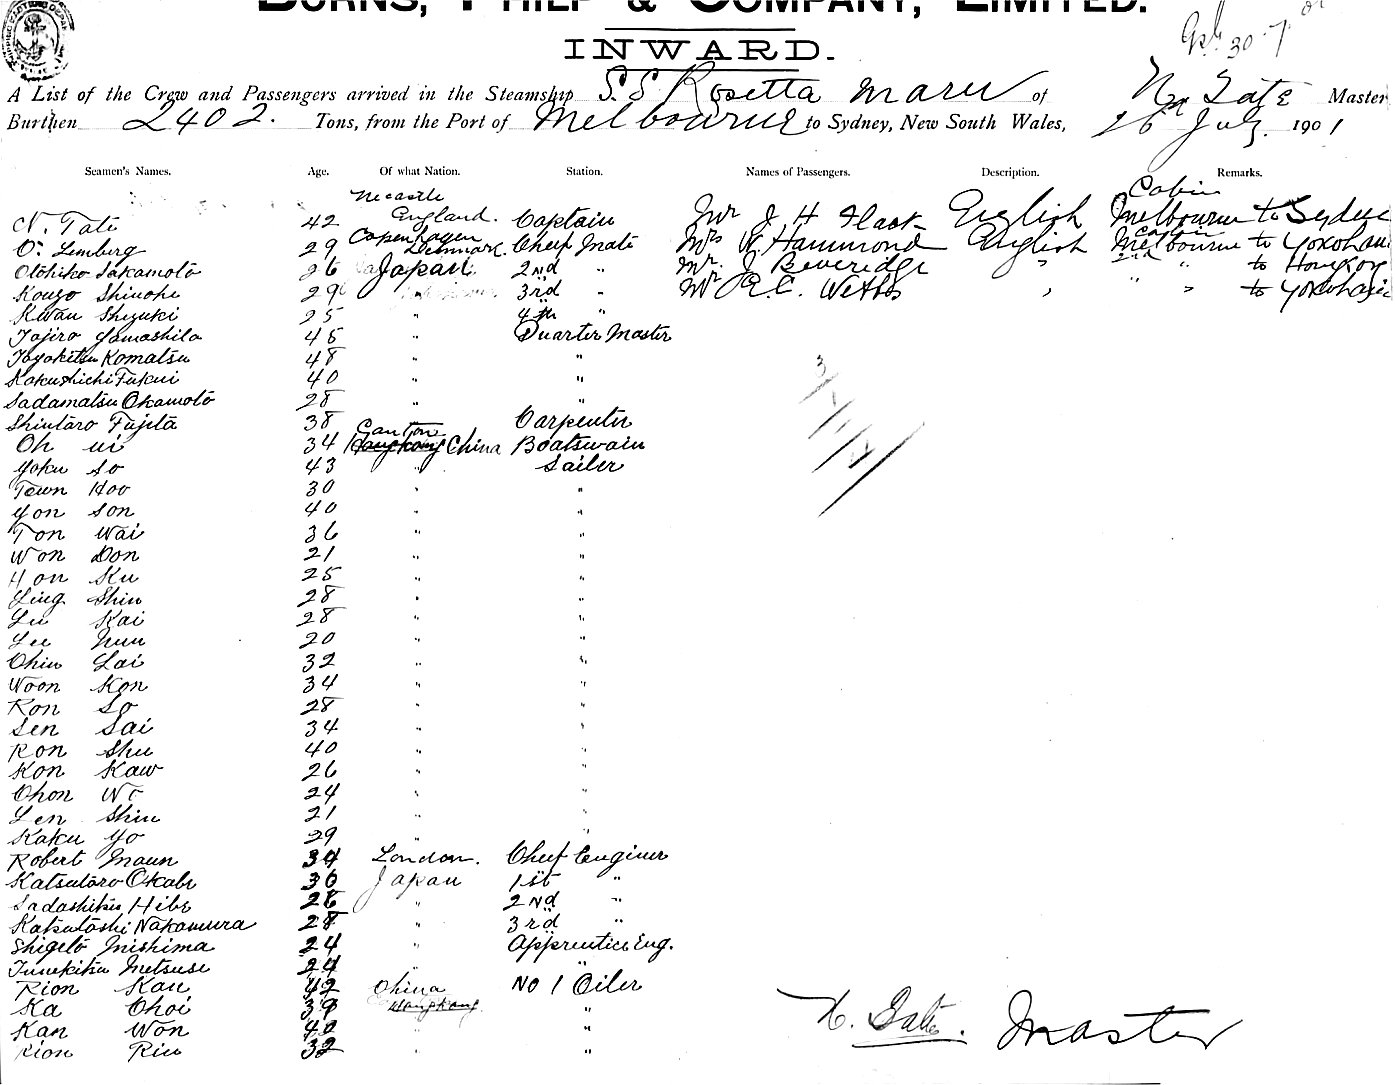 BURNS, PHILP & COMPANY, LIMITED.
INWARD.
A List of the Crew and Passengers arrived in the Steamship S.S Rosetta Maru of N. Tate Master
Burthen 2402. Tons, from the Port of Melbourne to Sydney, New South Wales, 26th July. 1901
Seamen's Names. Age. Of what Nation. Station. Names of Passengers. Description. Remarks.
N. Tate 42 Necastle England. Captain Mr J H Flack English Cabin Melbourne to Sydney
O. Lemberg 29 Copenhagen Denmark. Cheif Mate Mrs W. Hammond English Cabin Melbourne to Yokohama
Otohiko Sakamoto 26 Japan. 2nd " Mr. J Beveridge " 2nd " to Hongkong
Kougo Shinohe 29 3rd " Mr E.C. Webbs " " " to Yokohama
Kwan Shizuki 25 " 4th "
Tojiro Yamashita 45 " Quarter Master
Toyokitsu Komatsu 48 " "
Kakushichi Fukui 40 " "
Sadamatsu Okamoto 28 " "
Shintaro Fujita 38 " Carpenter
Oh ui 34 Canton Hongkong China Boatswain
Yoku So 43 " Sailer
Town Hoo 30 " "
Yon Son 40 " "
Ton Wai 36 " "
Won Don 21 " "
Hon Ku 25 " "
Ling Shin 28 " "
Lu Kai 28 " "
Lee Nun 20 " "
Chin Lai 32 " "
Woon Kon 34 " "
Ron So 28 " "
Sen Sai 34 " "
Ron Shu 40 " "
Kon Kaw 26 " "
Chon Wo 24 " "
Len Shiu 21 " "
Kaku Yo 29 " "
Robert Maun 34 London. Cheif Enginer
Katsutaro Okabe 30 Japan 1st "
Sadashiku Hibe 26 " 2nd "
Katsutoshi Nakamura 28 " 3rd "
Shigeto Mishima 24 " Apprentice Eng.
Tunekitsu Metsuse 24 " "
Rion Kan 42 China No 1 Oiler
Ka Choi 39 Hongkong "
Kan Won 40 " "
Rion Riu 32 " "
N. Tate. Master